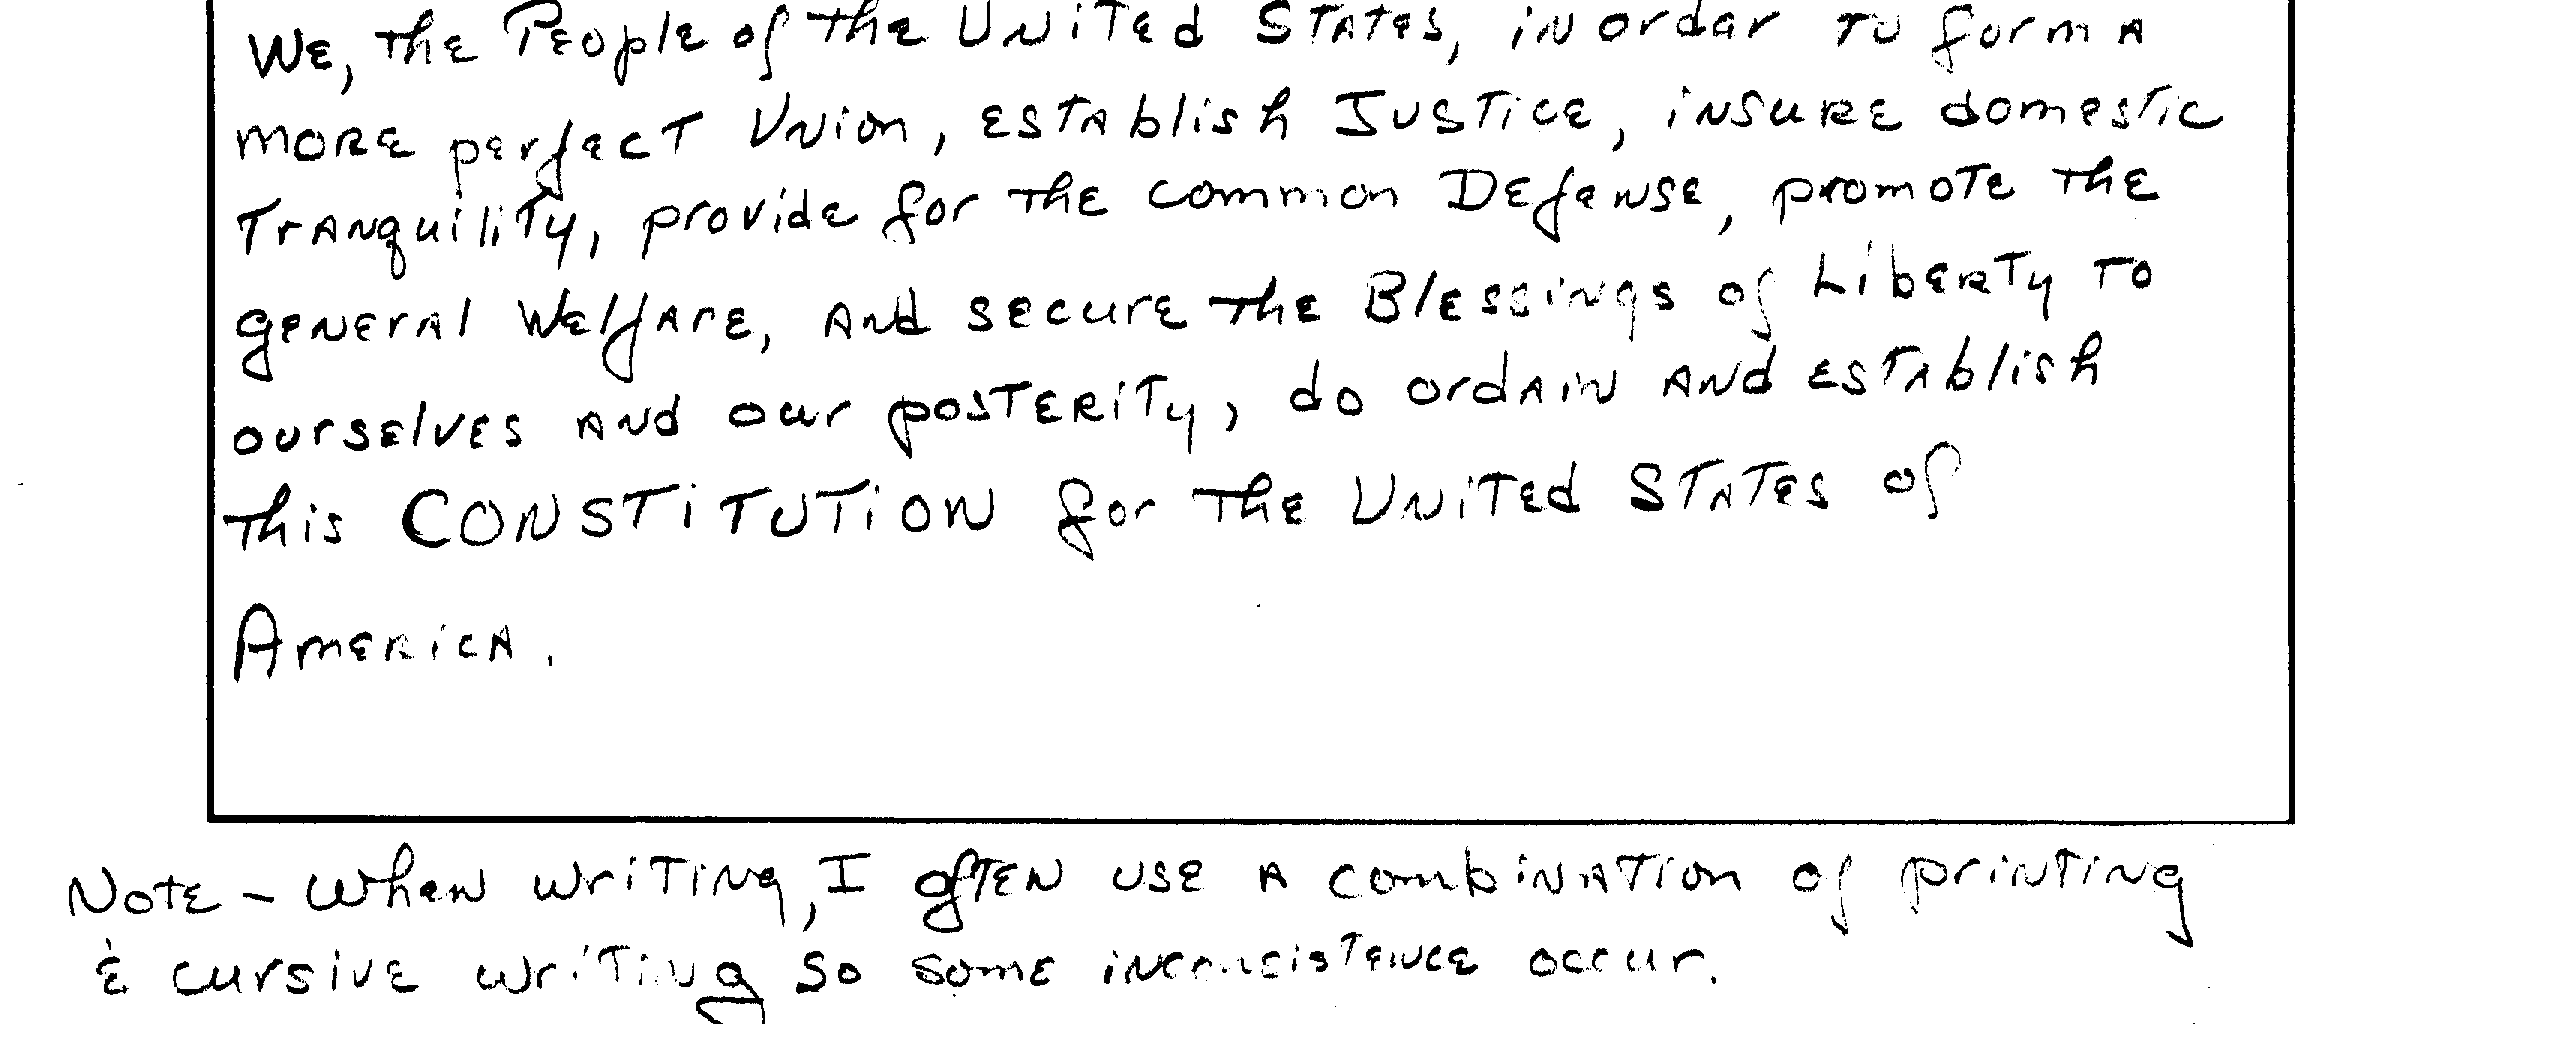 We, the People of the United States, in order to form a
more perfect Union, establish Justice, insure domestic
Tranquility, provide for the common Defense, promote the
general Welfare, and secure the Blessings of Liberty to
ourselves and our posterity, do ordain and establish
this CONSTITUTION for the United States of
America.
Note - When writing, I often use a combination of printing
& cursive writing so some inconsistence occur.